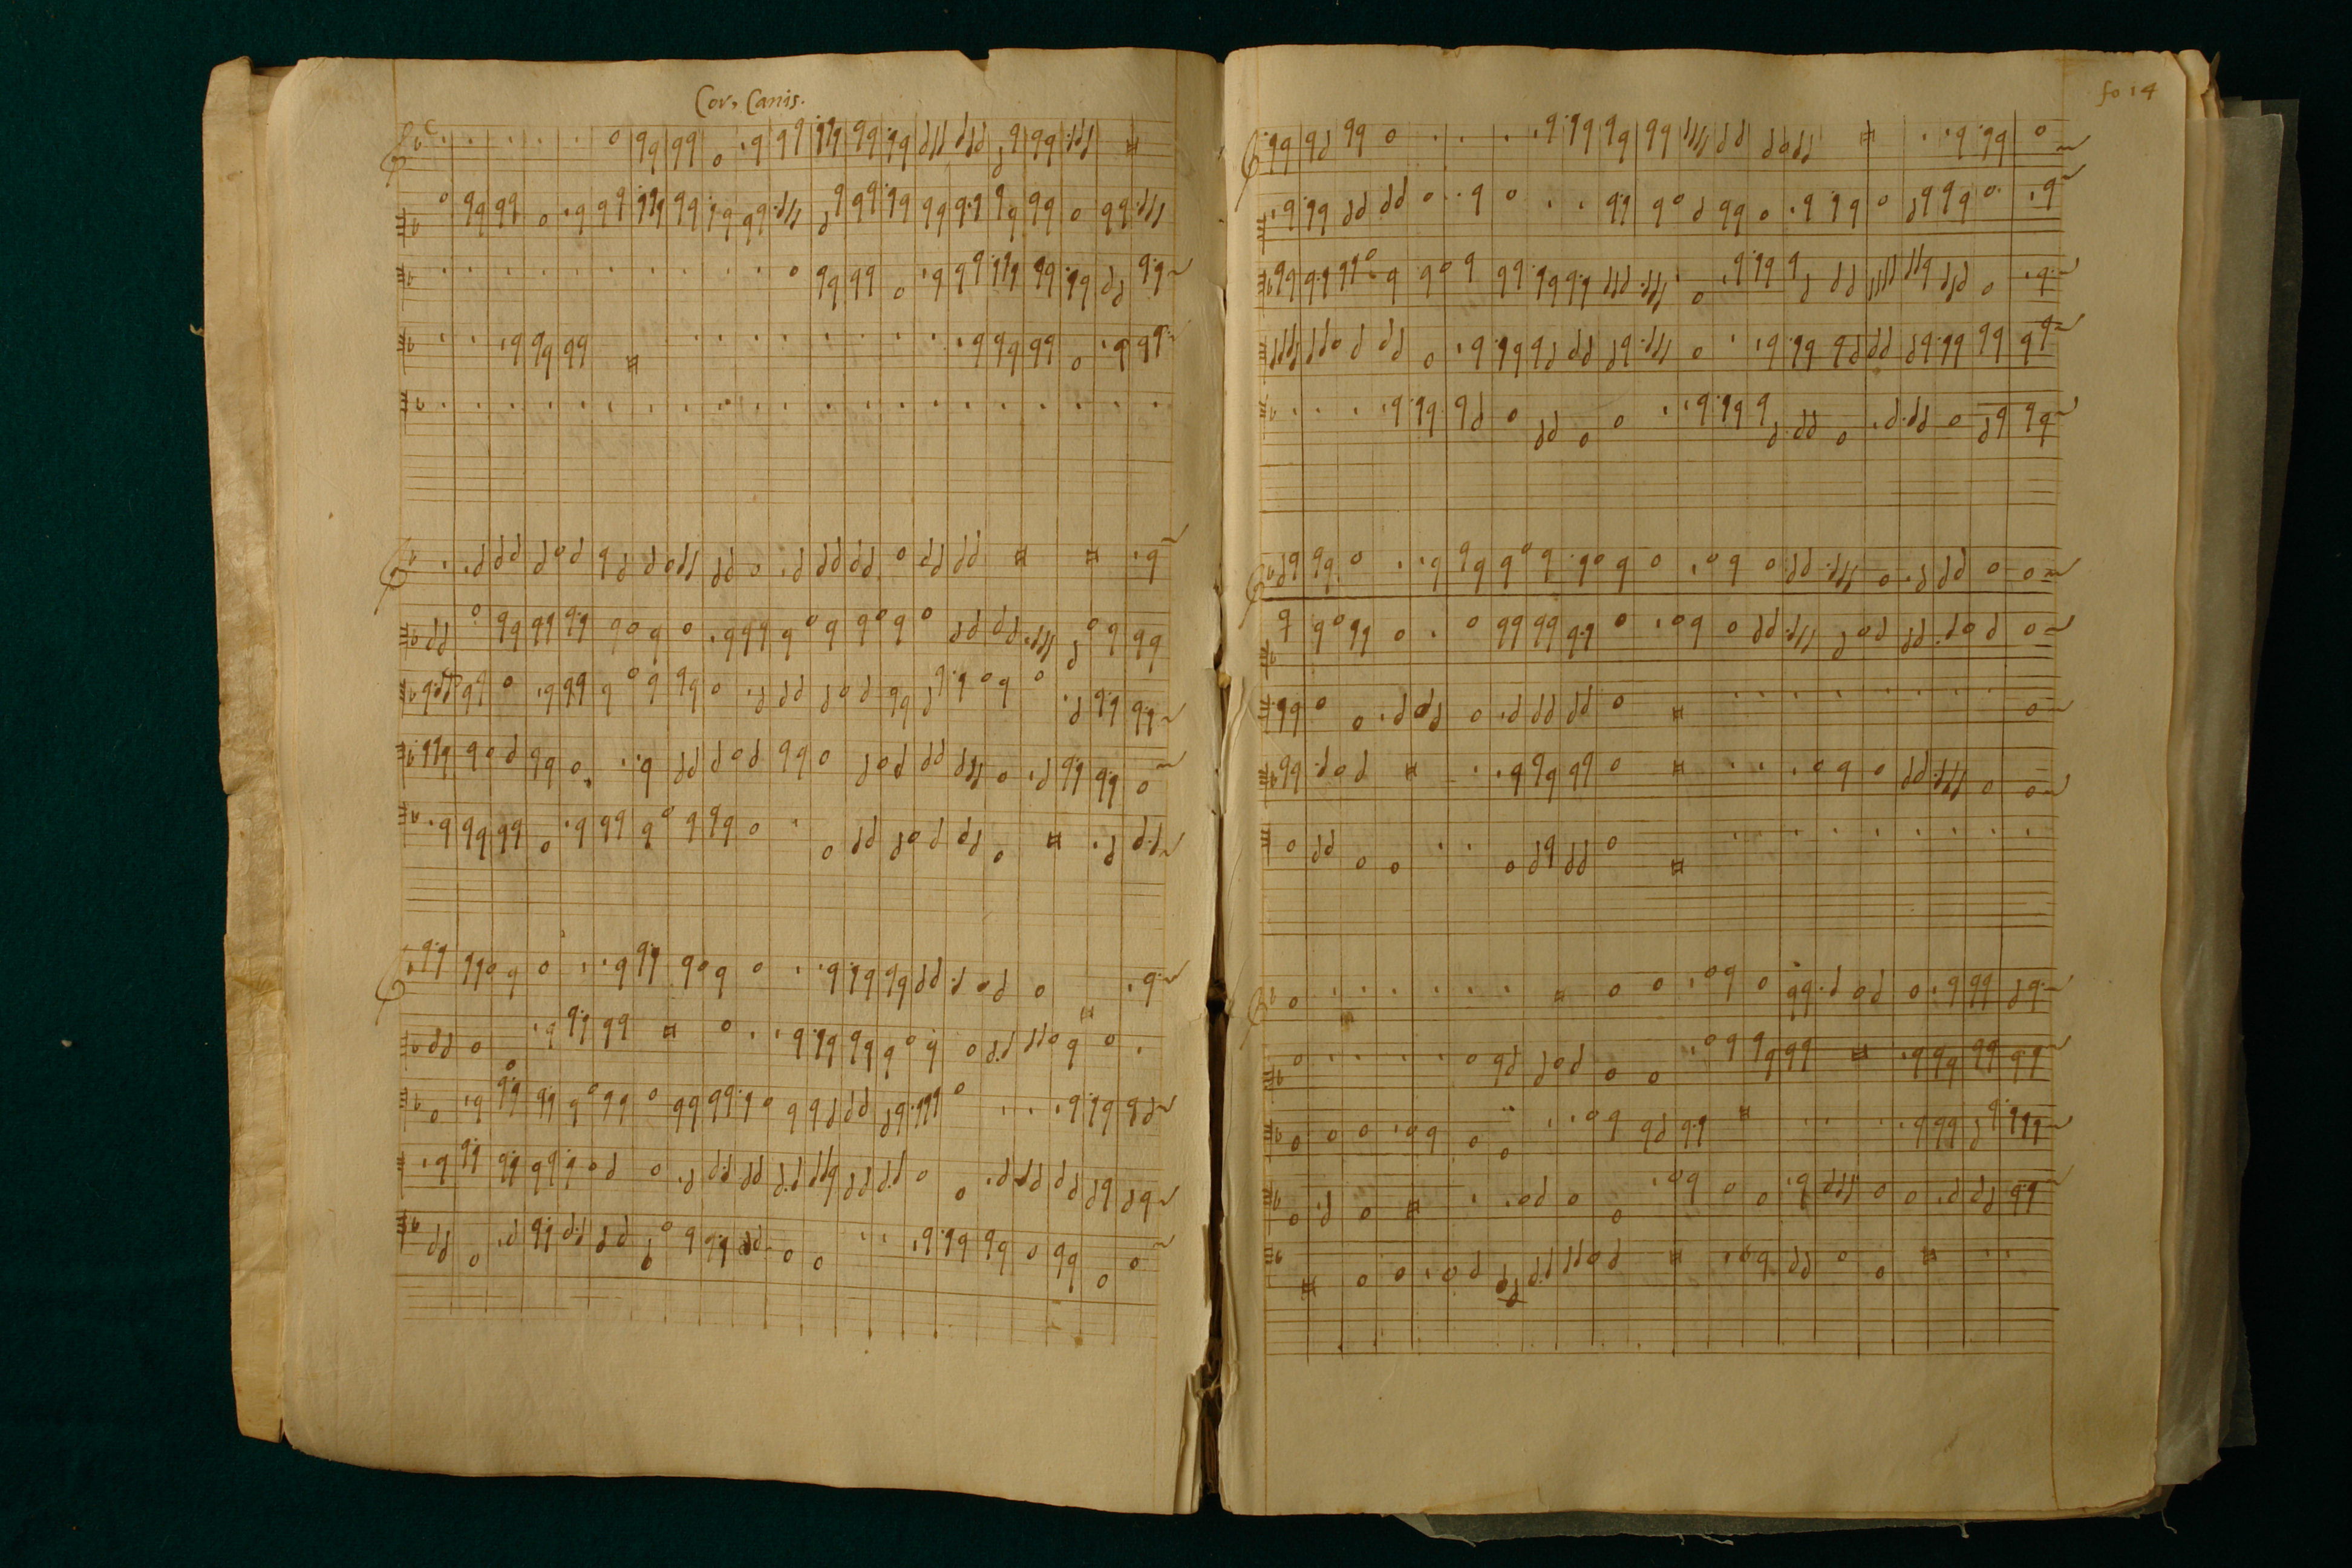 Cor, Canis.
fo 14